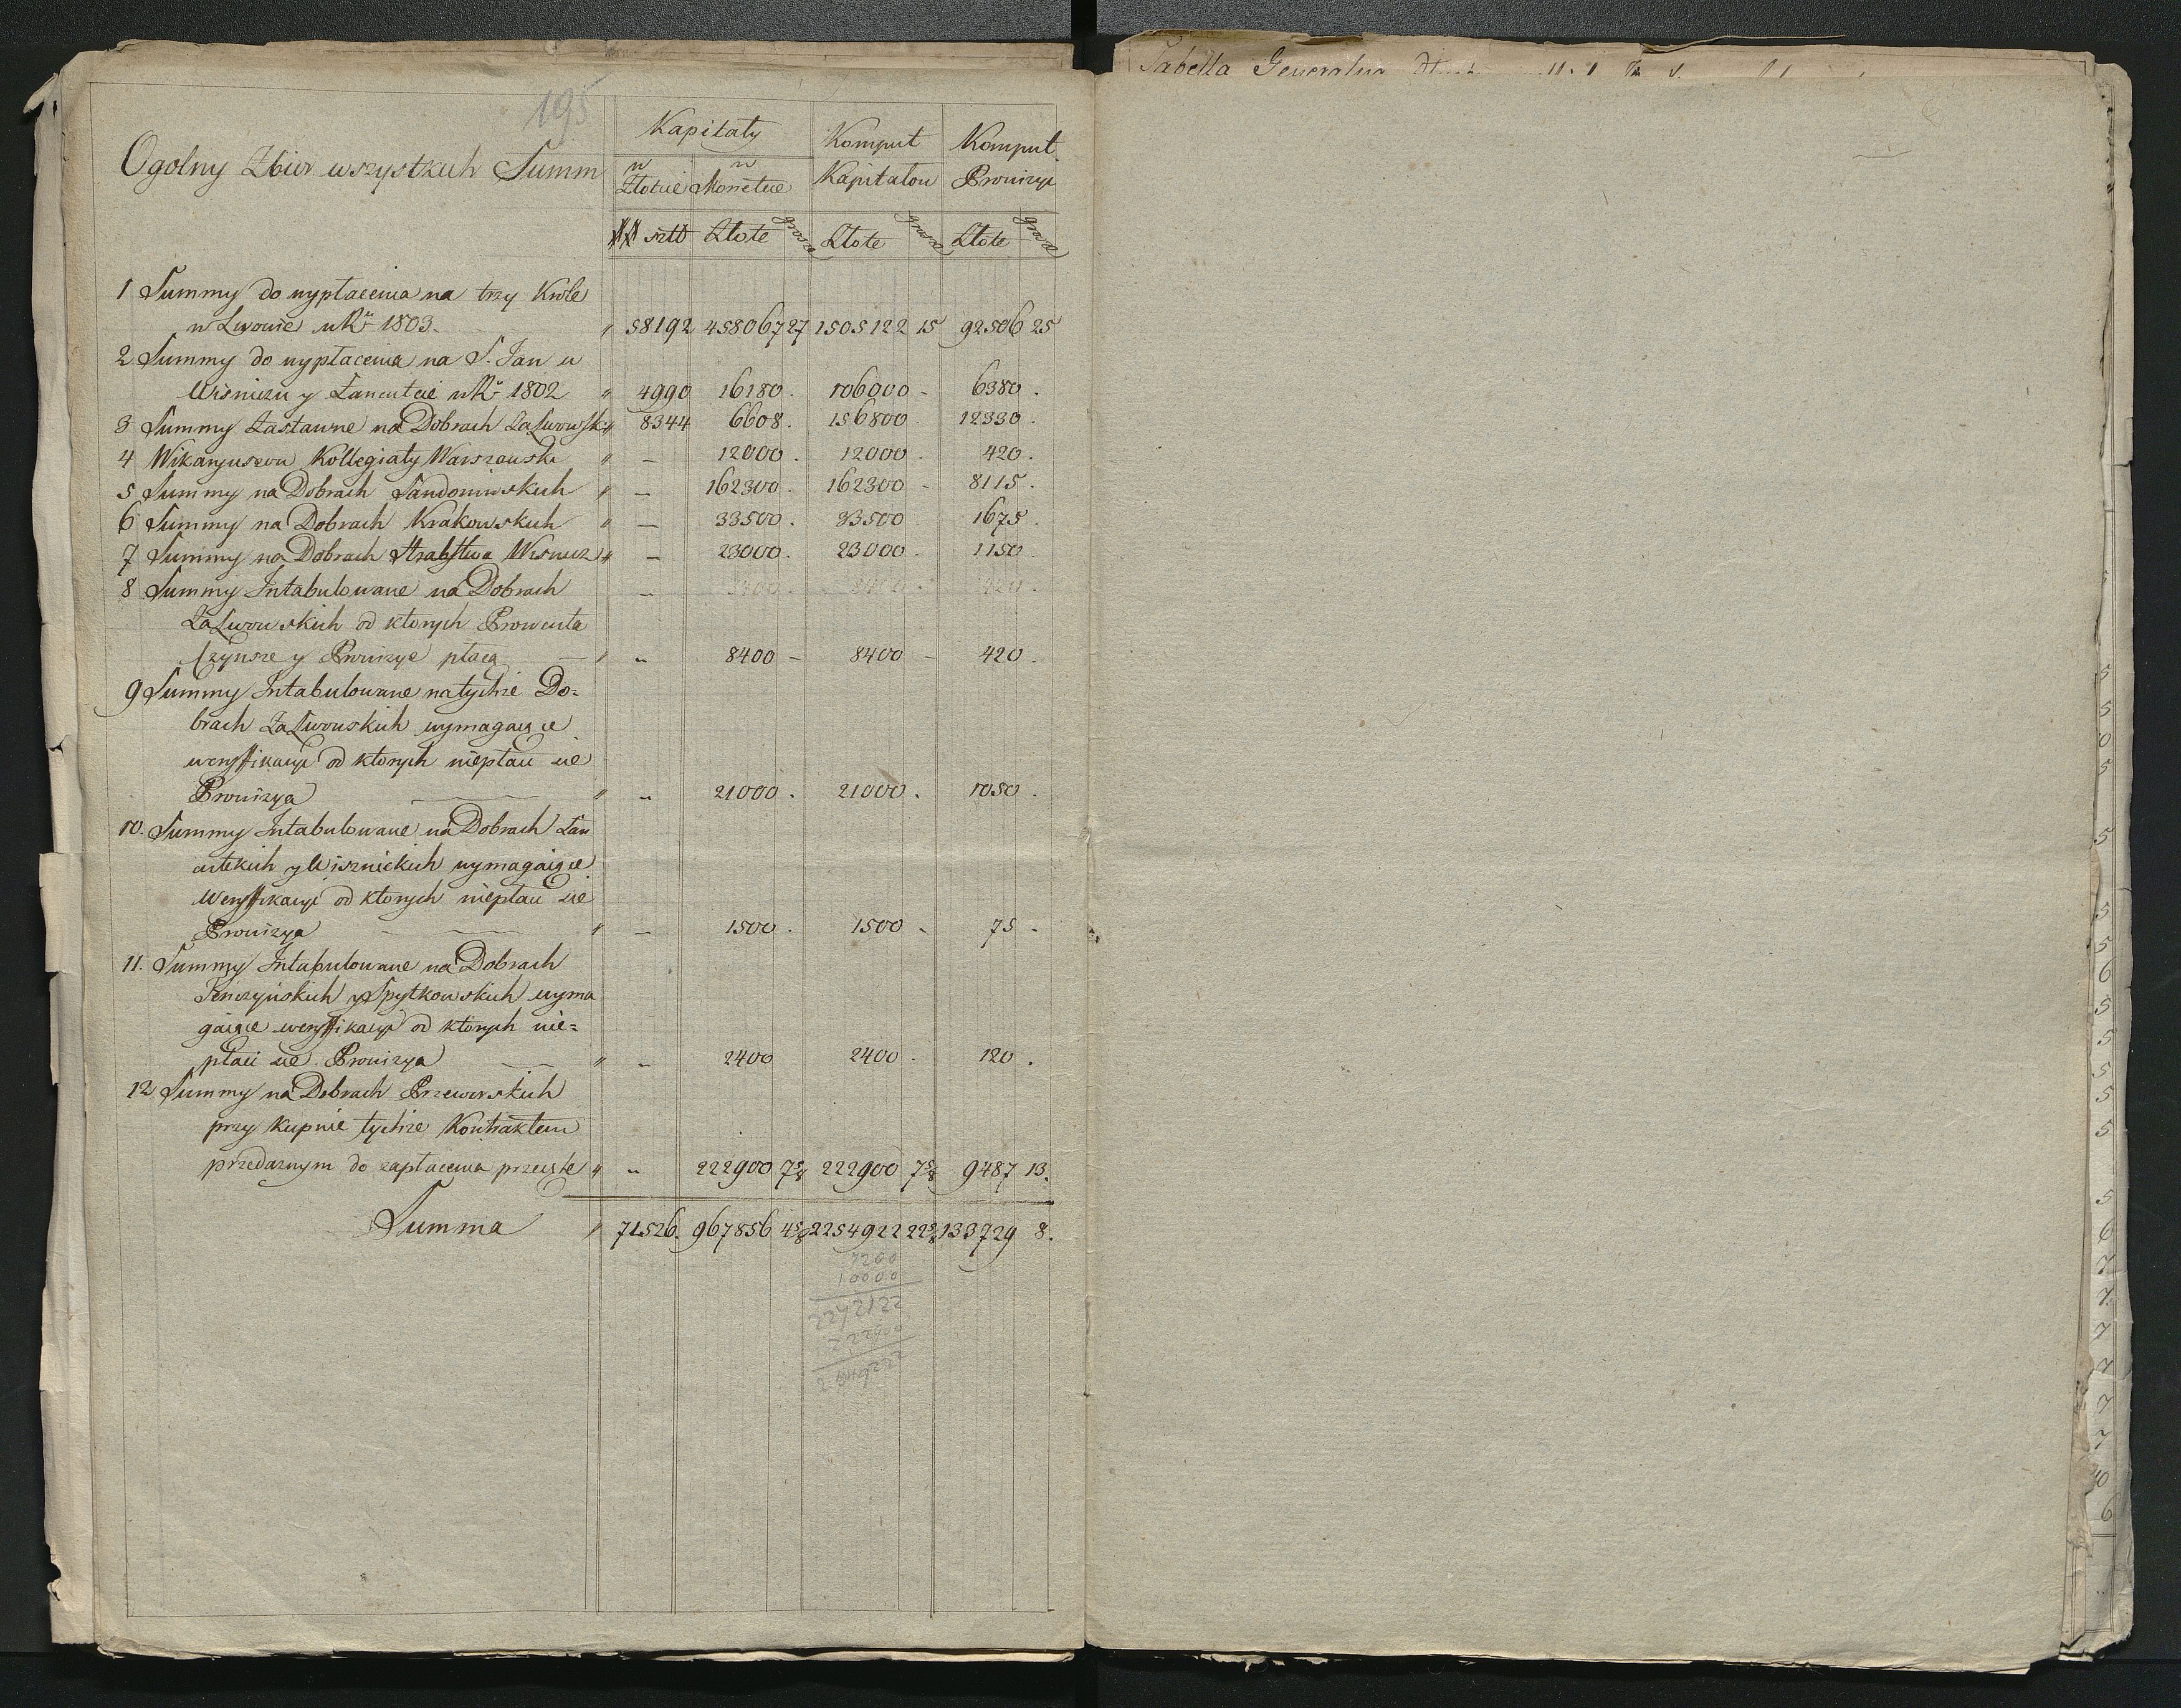 195
Kapitały
Komput
Komput
Ogolny Zbior wszystkich Summ
w Złocie
w Monecie
Kapitałow
Prowizyi
## szt
Złote
grosze
Złote
grosze
Złote
grosze
1 Summy do wypłacenia na trzy Krole
w Lwowie w Ru 1803. " 58192 458067 27 1505122 15 92506 25
2 Summy do wypłacenia na S. Jan w
Wisniczu y Łancucie w Ru 1802 " 4990 16180 . 106000 - 6380 .
3 Summy Zastawne na Dobrach ZaLwowsk " 8344 6608 . 156800 12330 .
4 Wikaryuszow Kollegiaty Warszawski " — 12000 . 12000 . 420 .
5 Summy na Dobrach Sandomirskich " — 162300 . 162300 - 8115 .
6 Summy na Dobrach Krakowskich " — 33500 . 33500 1675 .
7 Summy na Dobrach Hrabstwa Wisnicz " — 23000 . 23000 . 1150 .
8 Summy Intabulowane na Dobrach — 8400 . 8400 . 420 .
ZaLwowskich od ktorych Prowenta
Czynsze y Prowizye płacą — " — 8400 — 8400 — 420 .
9 Summy Intabulowane na tychże Do=
brach ZaLwowskich wymagaiące
weryffikacyi od ktorych niepłaci sie
Prowizya — " — 21000 . 21000 . 1050 .
10. Summy Intabulowane na Dobrach Łan
cutckich y Wisznickich wymagaiące
Weryffikacyi od ktorych niepłaci sie
Prowizya — " — 1500 . 1500 - 75 -
11. Summy Intabulowane na Dobrach
Tenczyńskich y Spytkowskich wyma
gaiące weryffikacyi od ktorych nie=
płaci sie Prowizya — " — 2400 2400 . 120 .
12 Summy na Dobrach Przeworskich
przy kupnie tychże Kontraktem
przedaznym do zapłacenia przeięte " — 222900 7 5/8 222900 7 5/8 9487 13.
Summa " 71526. 967856 4 5/8 2254922 22 5/8 133729 8.
10000
2242122
Tabella Generalna